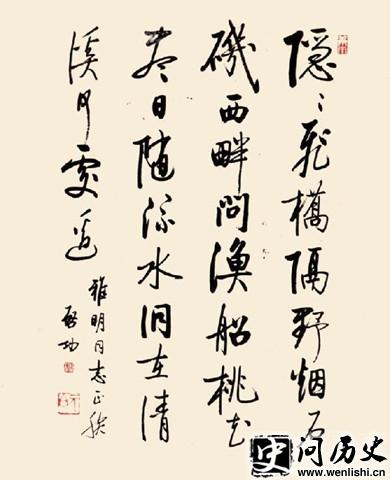 隐〻飛橋隔野烟石
磯西畔問漁船桃花
盡日随流水洞在清
溪何處邊
雅明同志正腕
啓功
问历史
www.wenlishi.cn